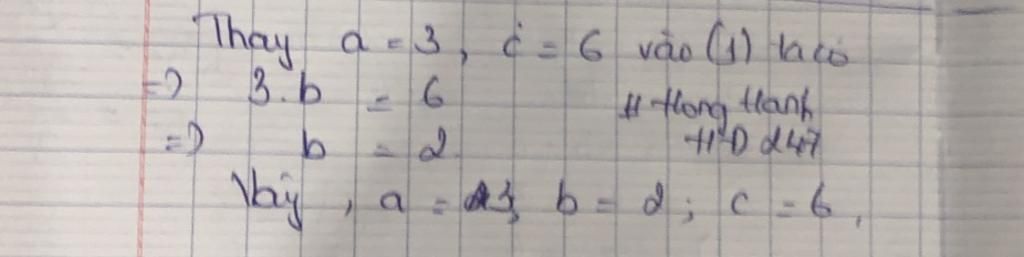 Thay a = 3, c = 6 vào (1) ta có
=> 3.b = 6 # Hong Hanh
=> b = 2 HD 247
Vậy, a = 3; b = 2; c = 6.